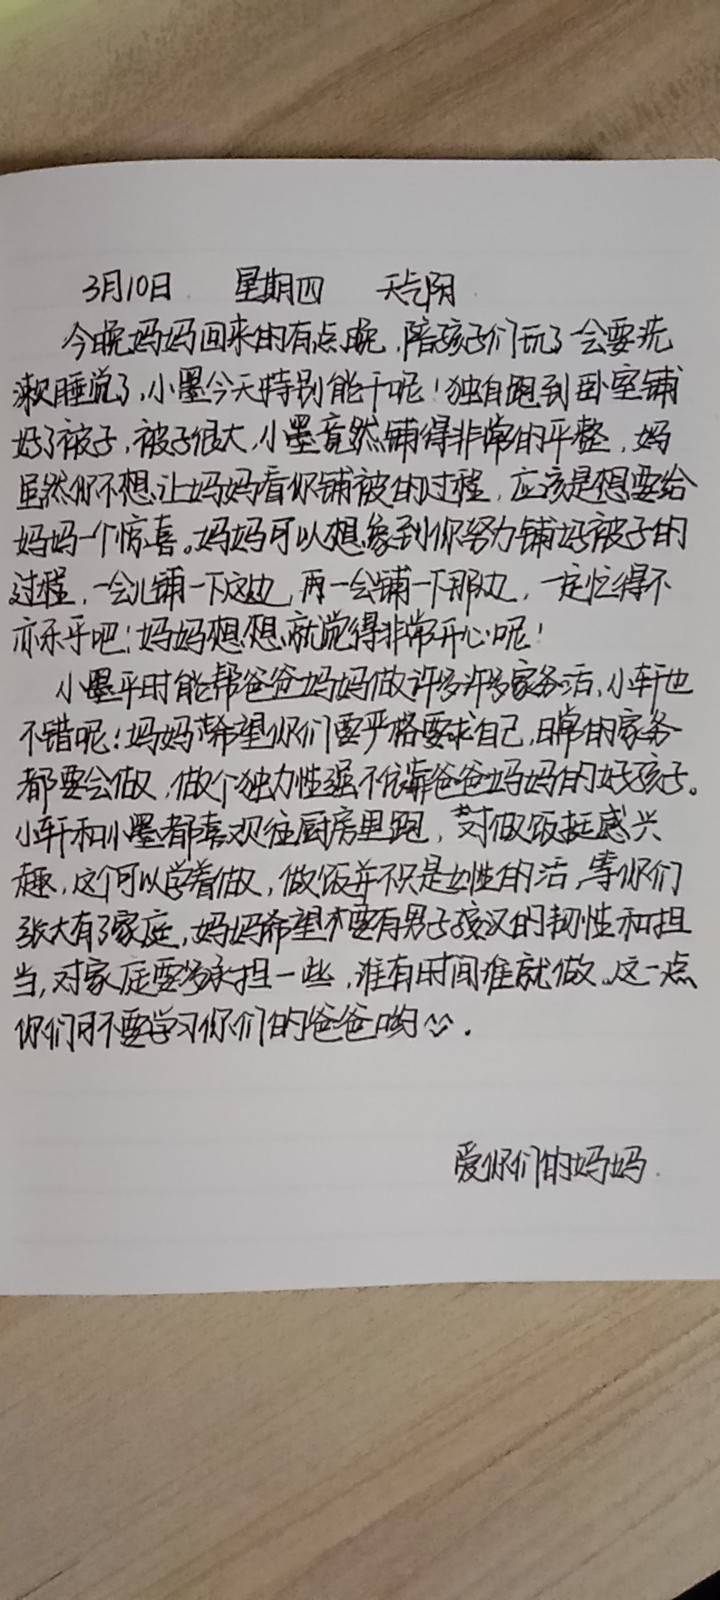 3月10日 星期四 天气阴
今晚妈妈回来的有点晚,陪孩子们玩了会要洗
漱睡觉了,小墨今天特别能干呢!独自跑到卧室铺
好了被子,被子很大,小墨竟然铺得非常的平整,妈
虽然你不想让妈妈看你铺被的过程,应该是想要给
妈妈一个惊喜。妈妈可以想象到你努力铺好被子的
过程,一会儿铺一下这边,再一会铺一下那边,一定忙得不
亦乐乎吧!妈妈想想就觉得非常开心呢!
小墨平时能帮爸爸妈妈做许多许多家务活,小轩也
不错呢!妈妈希望你们要严格要求自己,日常的家务
都要会做,做个独力性强不依靠爸爸妈妈的好孩子。
小轩和小墨都喜欢往厨房里跑,对做饭挺感兴
趣,这个可以学着做,做饭并不只是女性的活,等你们
张大有了家庭,妈妈希望要有男子汉的韧性和担
当,对家庭要多承担一些,谁有时间谁就做。这一点
你们可不要学习你们的爸爸哟。
爱你们的妈妈.